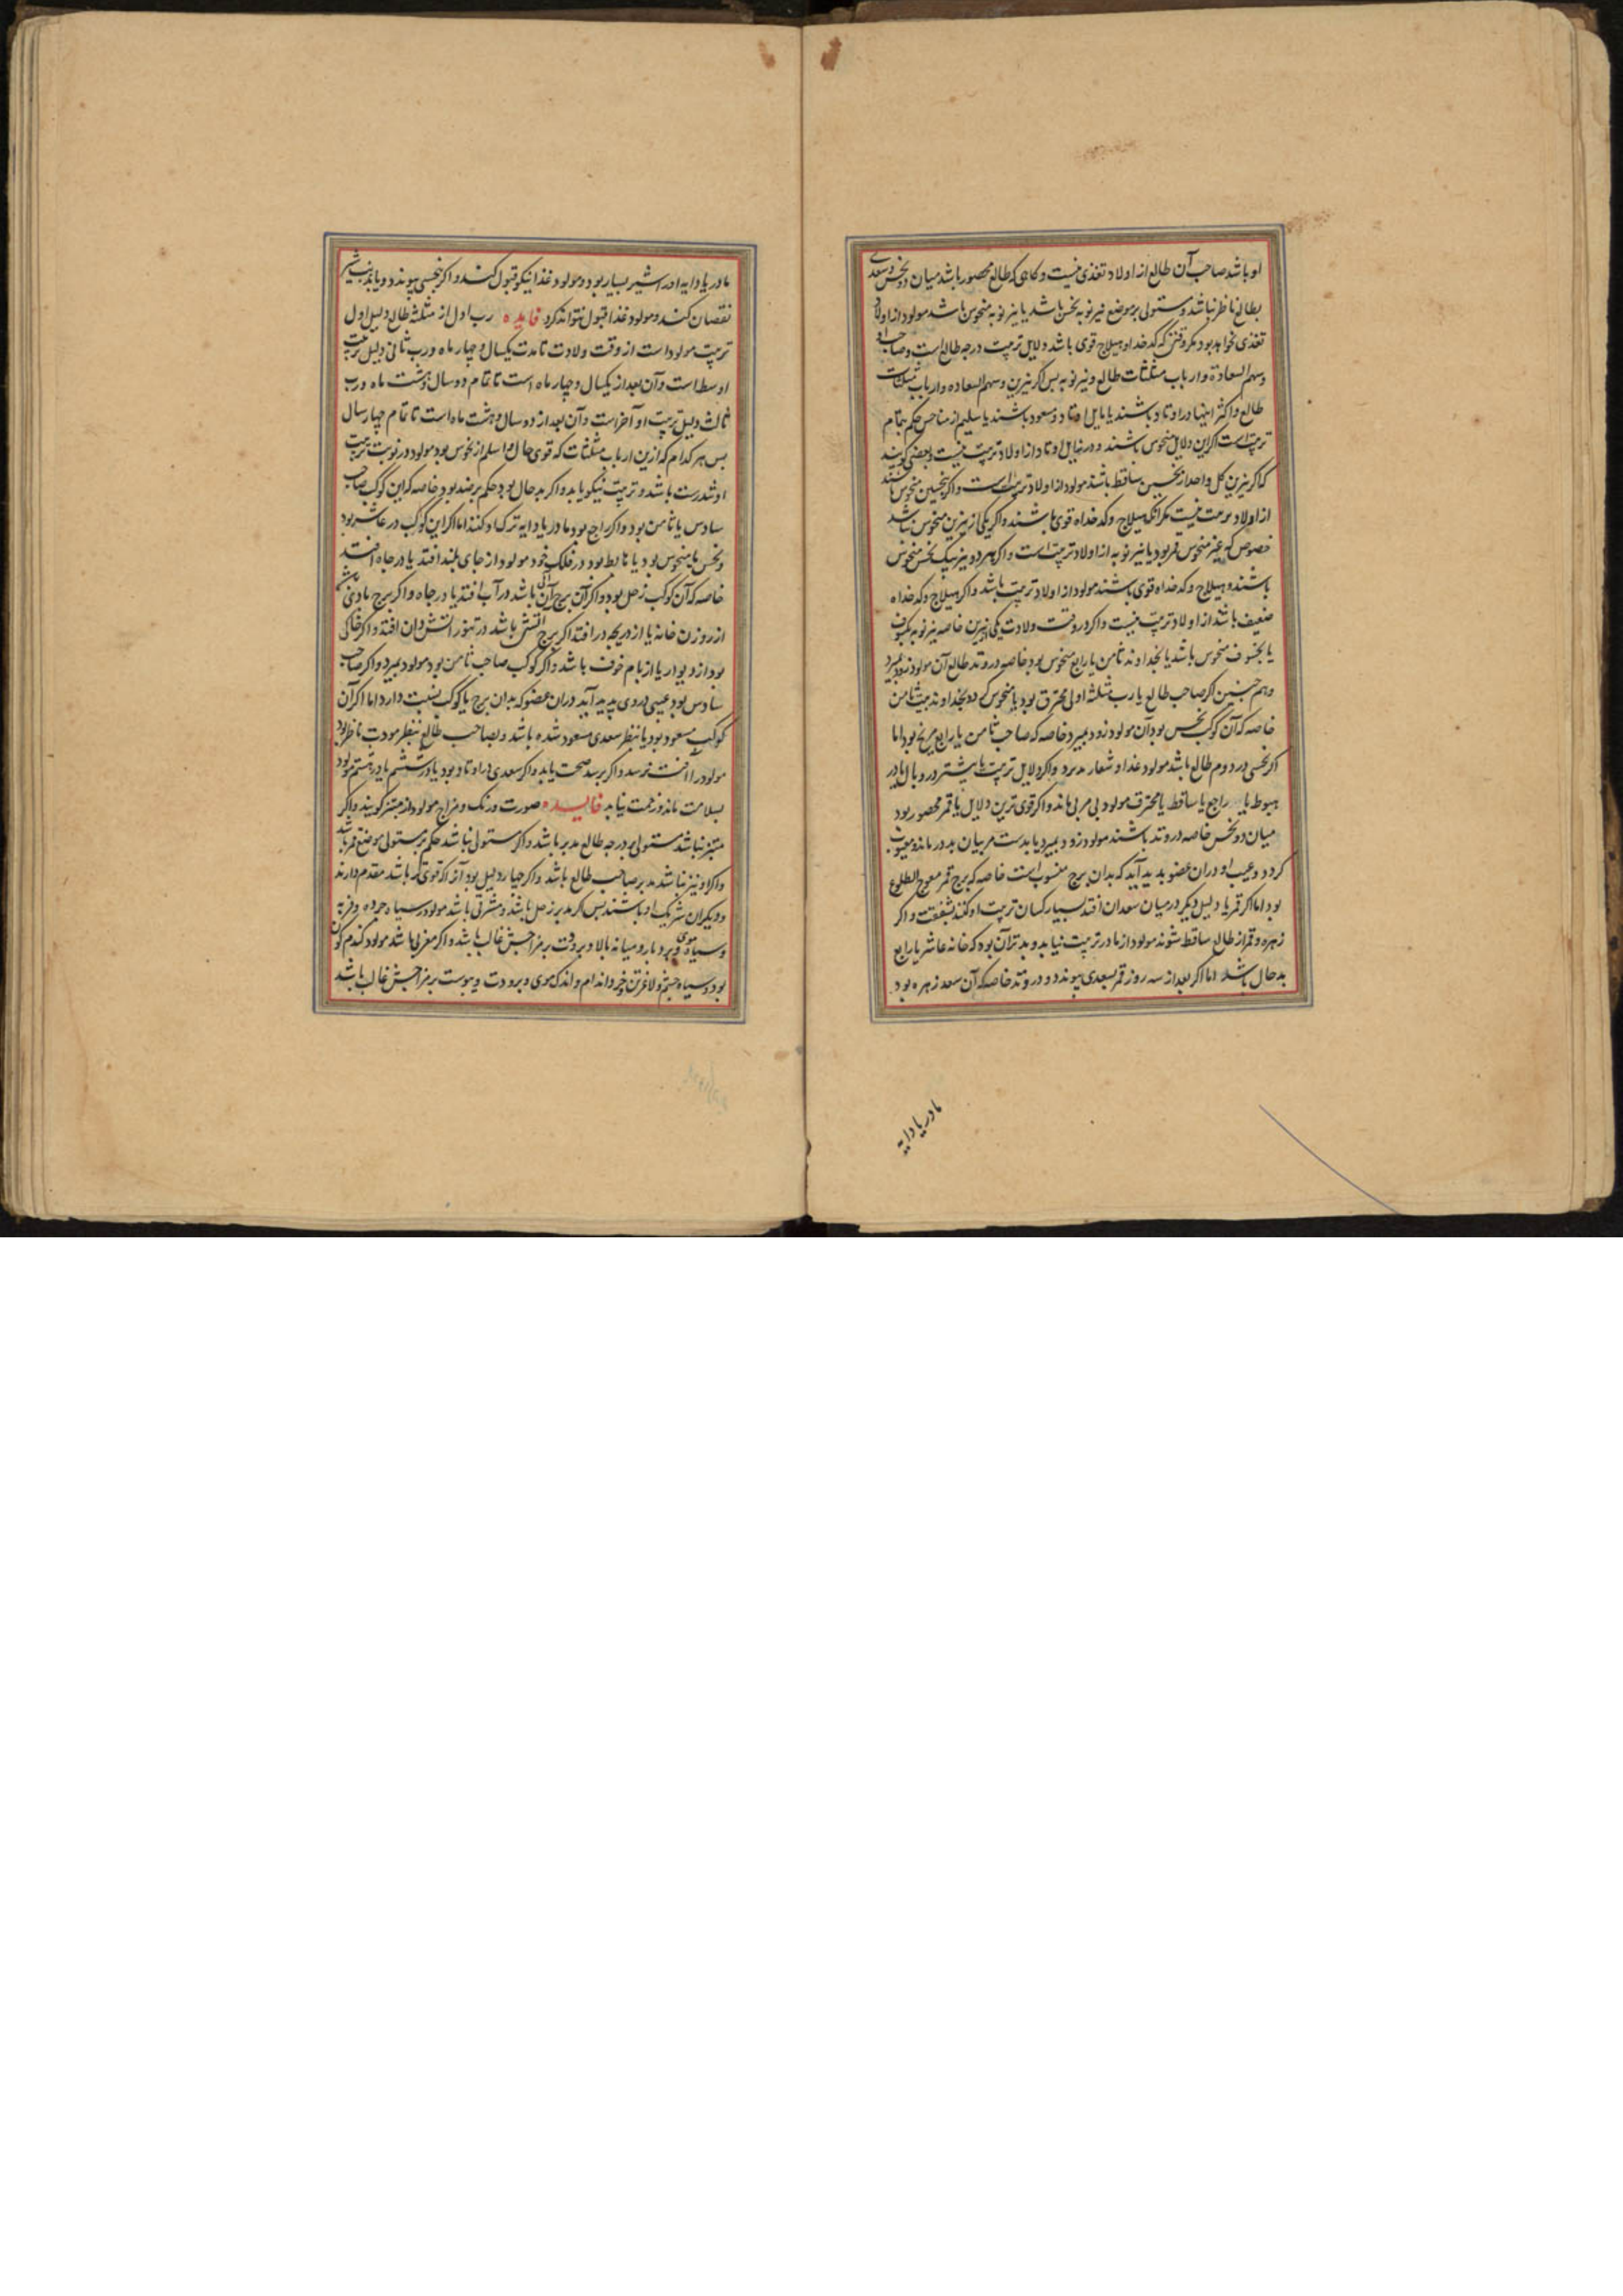 او باشد صاحب آن طالع از اولاد تغذی نیست و کاهی که طالع محصور باشد میان دو نحس و سعدی
بطالع ناظر نباشد و مستولی بر موضع نیر نوبه نحس باشد یا نیر نوبه منحوس باشد مولود از اولاد
تغذی نخواهد بود مکر وقتی که کدخدا و هیلاج قوی باشد دلایل تربیت درجه طالع است و صاحب او
و سهم السعادة و ارباب مثلثات طالع و نیر نوبه پس اکر نیرین و سهم السعاده و ارباب مثلثات
طالع و اکثر اینها در اوتاد باشند یا مایل اوتاد و مسعود باشند یا سلیم از مناحس حکم بتمام
تربیت است اکر این دلایل منحوس باشند و در زایل اوتاد از اولاد تربیت نیست و بعضی کویند
که اکر نیرین کل واحد از نحسین ساقط باشند مولود از اولاد تربیت است و اکر بنحسین منحوس باشند
از اولاد تربیت نیست مکر آنکه هیلاج و کدخداه قوی باشند و اکر یکی از نیرین منحوس باشد
خصوص که غیر منحوس قمر بود یا نیر نوبه از اولاد تربیت است و اکر هر دو نیر بیک نحس منحوس
باشند و هیلاج و کدخداه قوی باشند مولود از اولاد تربیت باشد و اکر هیلاج و کدخداه
ضعیف باشد از اولاد تربیت نیست و اکر در وقت ولادت یکی از نیرین خاصه نیر نوبه بکسوف
یا بخسوف منحوس باشد یا بخداوند ثامن یا رابع منحوس بود خاصه در وتد طالع آن مولود زود بمیرد
و هم چنین اکر صاحب طالع یا رب مثلثه اولی محترق بود یا منحوس کردد بخداوند بیت ثامن
خاصه که آن کوکب نحس بود آن مولود زود بمیرد خاصه که صاحب ثامن یا رابع مریخ بود اما
اکر نحسی در دوم طالع باشد مولود غذا و شعار برد و اکر دلایل تربیت یا بیشتر در وبال یا در
هبوط یا راجع یا ساقط یا محترق مولود بی مربی ماند و اکر قوی ترین دلایل یا قمر محصور بود
میان دو نحس خاصه در وتد باشند مولود زود بمیرد یا بدست مربیان بد در ماند و معیوب
کردد و عیب او در آن عضو پدید آید که بدان برج منسوب است خاصه که برج قمر معوج الطلوع
بود اما اکر قمر یا دلیل دیکر در میان سعدان افتد بسیار کسان تربیت او کنند بشفقت و اکر
زهره و قمر از طالع ساقط شوند مولود از مادر تربیت نیابد و بدتر آن بود که خانه عاشر یا رابع
بد حال باشد اما اکر بعد از سه روز قمر بسعدی پیوندد و در وتد خاصه که آن سعد زهره بود
مادر یا دایه
مادر یا دایه او را شیر بسیار بود و مولود غذا نیکو قبول کند و اکر بنحسی پیوندد و یا بذنب شیر
نقصان کند و مولود غذا قبول نتواند کرد فایده رب اول از مثلثه طالع دلیل اول
تربیت مولود است از وقت ولادت تا مدت یکسال و چهار ماه و رب ثانی دلیل تربیت
اوسط است و آن بعد از یکسال و چهار ماه است تا تمام دو سال و هشت ماه و رب
ثالث دلیل تربیت او آخر است و آن بعد از دو سال و هشت ماه است تا تمام چهار سال
پس هر کدام که ازین ارباب مثلثات که قوی حال و سالم از نحوس بود مولود در نوبت تربیت
او تندرست باشد و تربیت نیکو یابد و اکر بد حال بود حکم بر ضد بود خاصه که این کوکب صاحب
سادس یا ثامن بود و اکر راجع بود مادر یا دایه ترک او کنند اما اکر این کوکب در عاشر بود
و نحس یا منحوس بود یا هابط بود در فلک خود مولود از جای بلند افتد یا در چاه افتد
خاصه که آن کوکب زحل بود و اکر آن برج آبی باشد در آب افتد یا در چاه و اکر برج بادی باشد
از روزن خانه یا از دریچه در افتد اکر برج آتشی باشد در تنور آتش دان افتد و اکر خاکی
بود از دیوار یا از بام خوف باشد و اکر کوکب صاحب ثامن بود مولود بمیرد و اکر صاحب
سادس بود عیبی در وی پدید آید در آن عضو که بدان برج یا کوکب نسبت دارد اما اکر آن
کوکب مسعود بود یا بنظر سعدی مسعود شده باشد و بصاحب طالع بنظر مودت ناظر بود
مولود را آفت نرسد و اکر برسد صحت یابد و اکر سعدی در اوتاد بود یا در ششم یا در هشتم مولود
بسلامت ماند و زحمت نیابد فایده صورت و رنک و مزاج مولود از مبتز کویند و اکر
مبتز نباشد مستولی بر درجه طالع مدبر باشد و اکر مستولی نباشد حکم بر مستولی موضع قمر باشد
و اکر او نیز نباشد مدبر صاحب طالع باشد و اکر چهار دلیل بود آنرا که قوی تر باشد مقدم دارند
و دیکران شریک او باشند پس اکر مدبر زحل باشد و مشرقی باشد مولود سیاه چرده و فربه
و سیاه موی و میانه بالا و برودت بر مزاجش غالب باشد و اکر مغربی باشد مولود کندم کون
بود و سیاه چشم و لاغر تن و خرد اندام و اندک موی و برودت و یبوست بر مزاجش غالب باشد